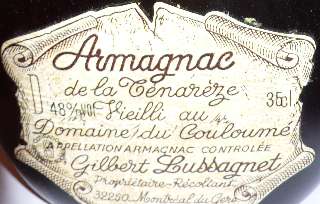 Armagnac
de la Ténarèze
48% vol Vieilli au 35cl
Domaine du Couloumé
APPELLATION ARMAGNAC CONTROLÉE
Gilbert Lussagnet
Propriétaire-Récoltant
32250 Montréal du Gers